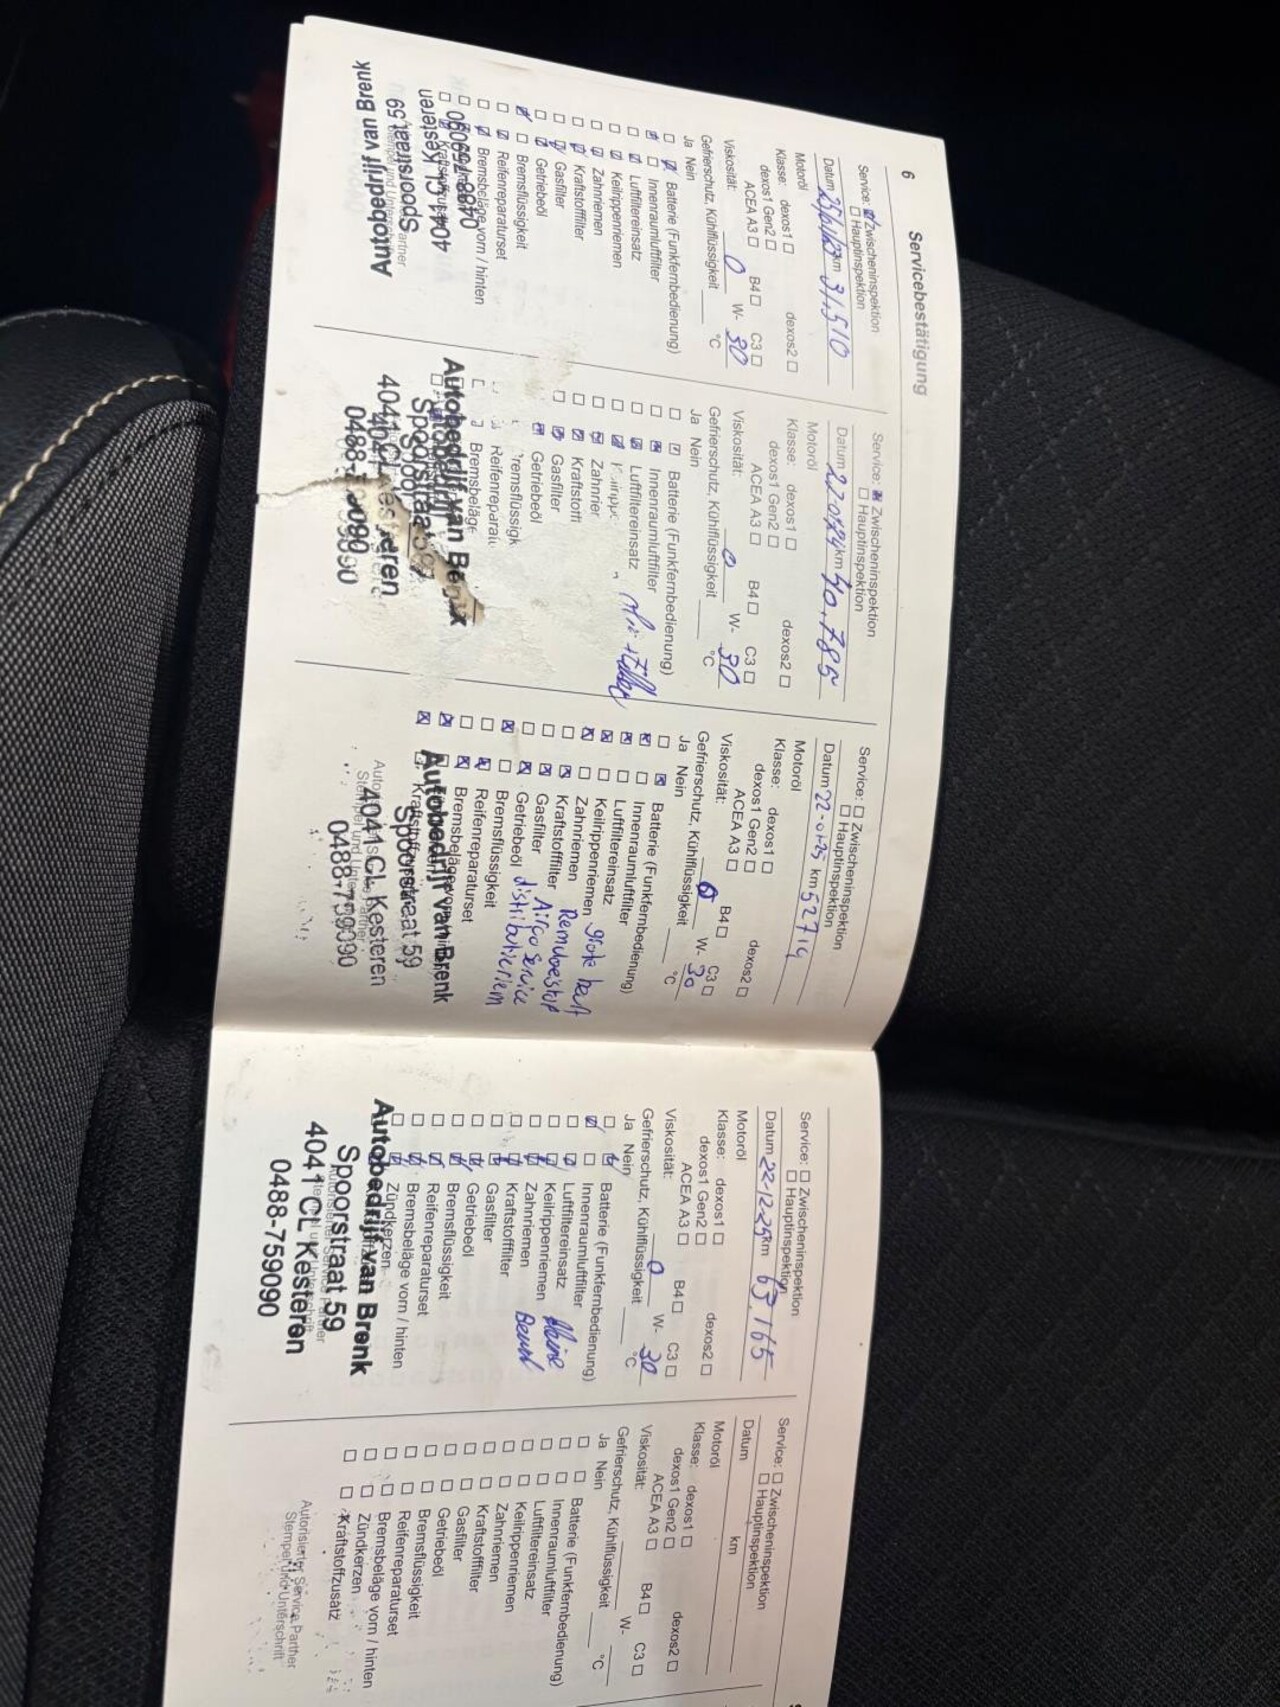 6 Servicebestätigung
Service: Zwischeninspektion
Hauptinspektion
Datum km 31.510
Motoröl
Klasse: dexos1 dexos2
dexos1 Gen2
ACEA A3 B4 C3
Viskosität: 0 W- 30
Gefrierschutz, Kühlflüssigkeit °C
Ja Nein
Batterie (Funkfernbedienung)
Innenraumluftfilter
Luftfiltereinsatz
Keilrippenriemen
Zahnriemen
Kraftstofffilter
Gasfilter
Getriebeöl
Bremsflüssigkeit
Reifenreparaturset
Bremsbeläge vorn / hinten
0488-759090
4041 CL Kesteren
Spoorstraat 59
Autobedrijf van Brenk
Service: Zwischeninspektion
Hauptinspektion
Datum 22-01-24 km 40.785
Motoröl
Klasse: dexos1 dexos2
dexos1 Gen2
ACEA A3 B4 C3
Viskosität: 0 W- 30
Gefrierschutz, Kühlflüssigkeit °C
Ja Nein
Batterie (Funkfernbedienung)
Innenraumluftfilter
Luftfiltereinsatz
Gasfilter
Getriebeöl
Autobedrijf van
4041 CL
Service: Zwischeninspektion
Hauptinspektion
Datum 22-01-25 km 52714
Motoröl
Klasse: dexos1 dexos2
dexos1 Gen2
ACEA A3 B4 C3
Viskosität: 0 W- 30
Gefrierschutz, Kühlflüssigkeit °C
Ja Nein
Batterie (Funkfernbedienung)
Innenraumluftfilter
Luftfiltereinsatz
Keilrippenriemen grote beurt
Zahnriemen
Kraftstofffilter Remvloeistof
Gasfilter Airco service
Getriebeöl distributieriem
Bremsflüssigkeit
Reifenreparaturset
Autobedrijf van Brenk
Spoorstraat 59
4041 CL Kesteren
0488-759090
Service: Zwischeninspektion
Hauptinspektion
Datum 22-12-25 km 63.165
Motoröl
Klasse: dexos1 dexos2
dexos1 Gen2
ACEA A3 B4 C3
Viskosität: 0 W- 30
Gefrierschutz, Kühlflüssigkeit °C
Ja Nein
Batterie (Funkfernbedienung)
Innenraumluftfilter
Luftfiltereinsatz
Keilrippenriemen kleine
Zahnriemen Beurt
Kraftstofffilter
Gasfilter
Getriebeöl
Bremsflüssigkeit
Reifenreparaturset
Bremsbeläge vorn / hinten
Zündkerzen
Autobedrijf van Brenk
Spoorstraat 59
4041 CL Kesteren
0488-759090
Service: Zwischeninspektion
Hauptinspektion
Datum km
Motoröl
Klasse: dexos1 dexos2
dexos1 Gen2
ACEA A3 B4 C3
Viskosität: W-
Gefrierschutz, Kühlflüssigkeit °C
Ja Nein
Batterie (Funkfernbedienung)
Innenraumluftfilter
Luftfiltereinsatz
Keilrippenriemen
Zahnriemen
Kraftstofffilter
Gasfilter
Getriebeöl
Bremsflüssigkeit
Reifenreparaturset
Bremsbeläge vorn / hinten
Zündkerzen
Kraftstoffzusatz
Autorisierter Service Partner
Stempel und Unterschrift